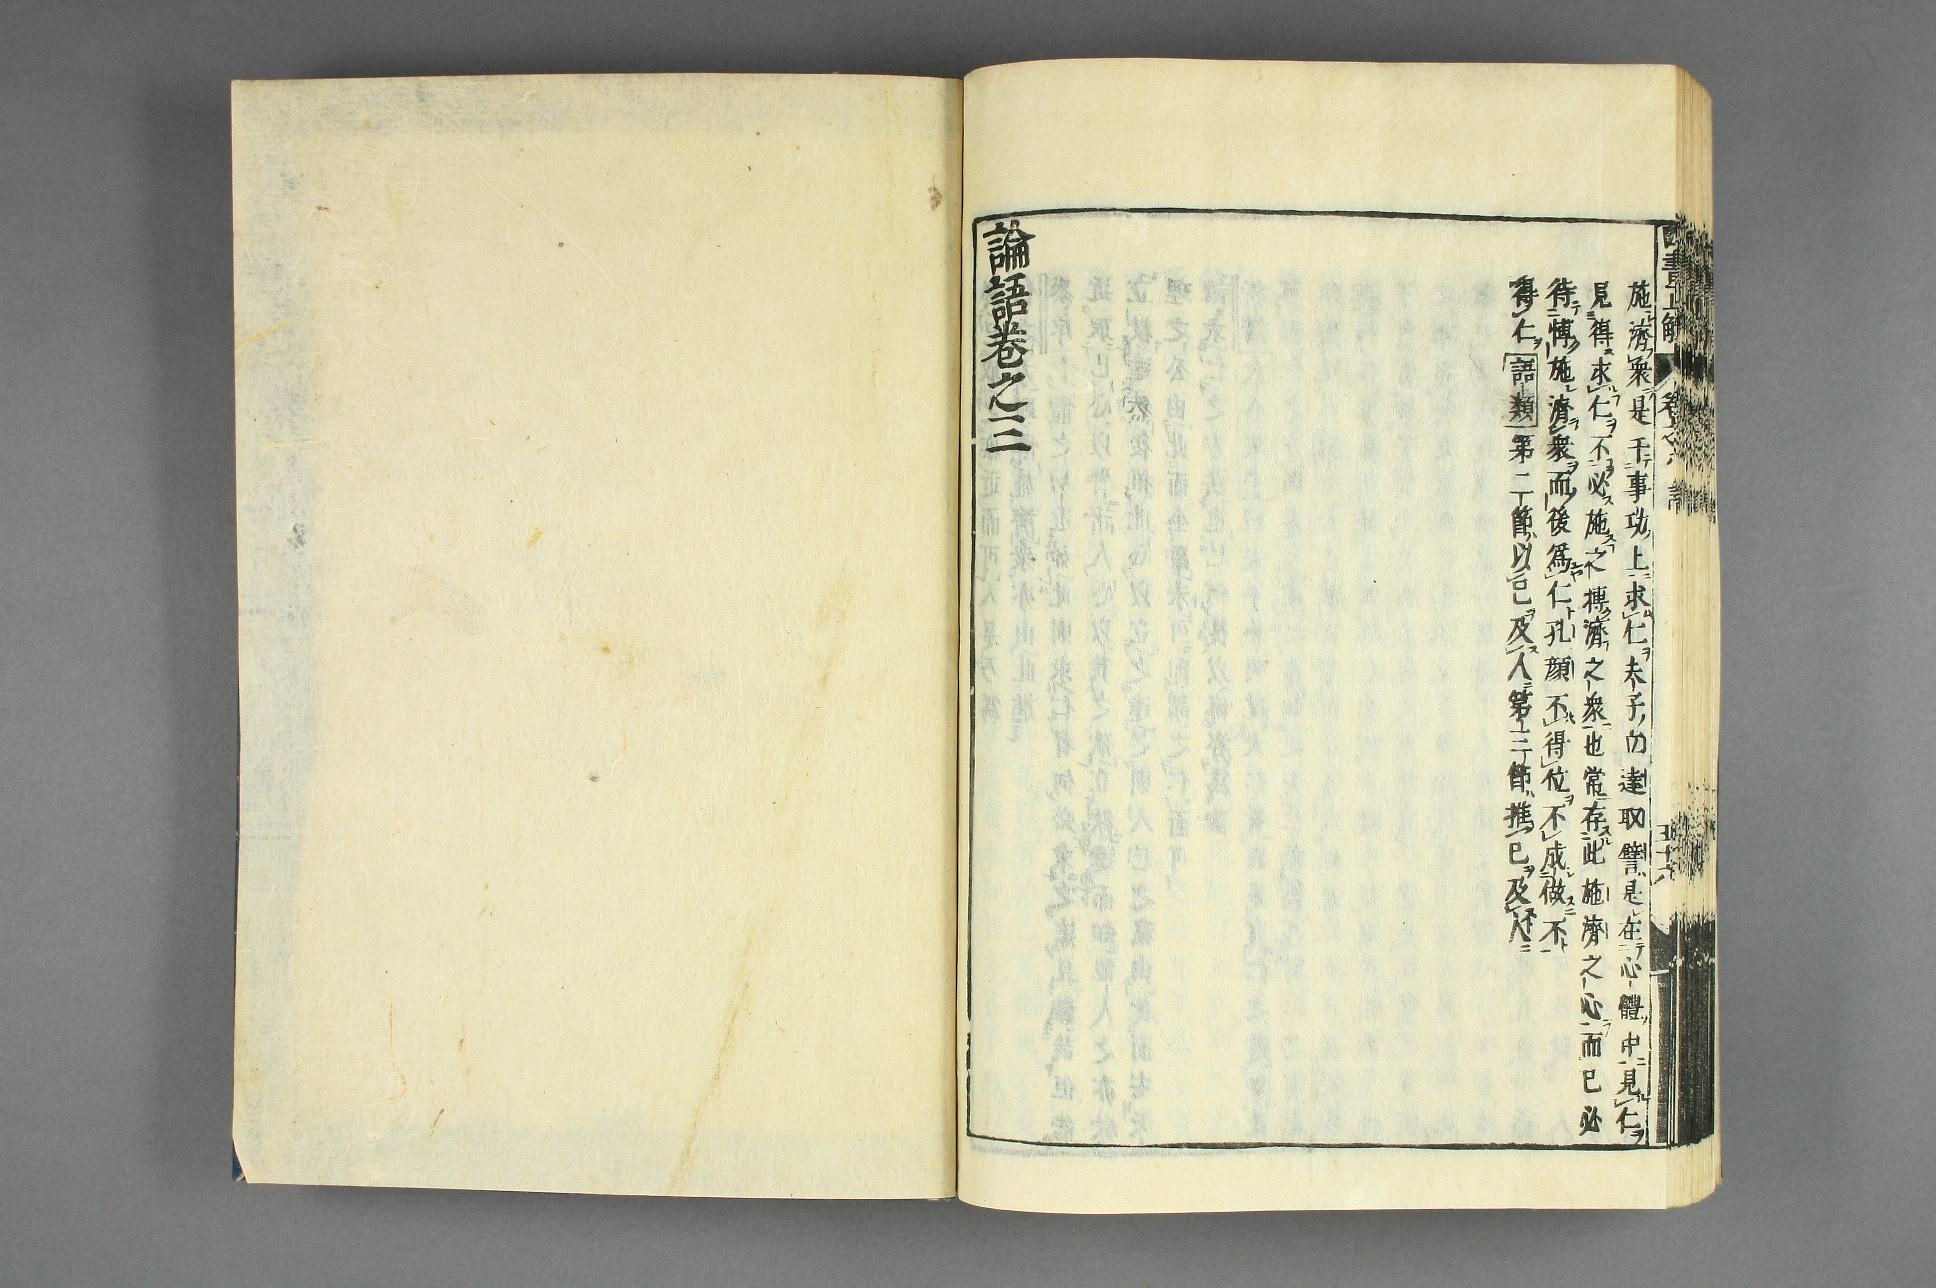 施濟衆是于事功上求仁夫子勿遠取譬是在心體中見仁
見得求仁不必施之博濟之衆也常存此施濟之心而已必
待博施濟衆而後爲仁孔顏不得位不成做不
得仁語類第二節以己及人第三節推己及人
論語卷之三
四書正解 卷之八 論
五十六